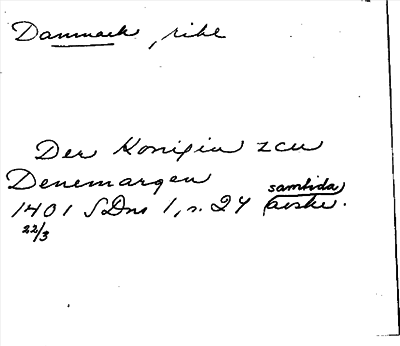 Danmark, rike
Der Konigin zcu
Denemargen
1401 SDns 1, s. 24 samtida avskr.
22/3